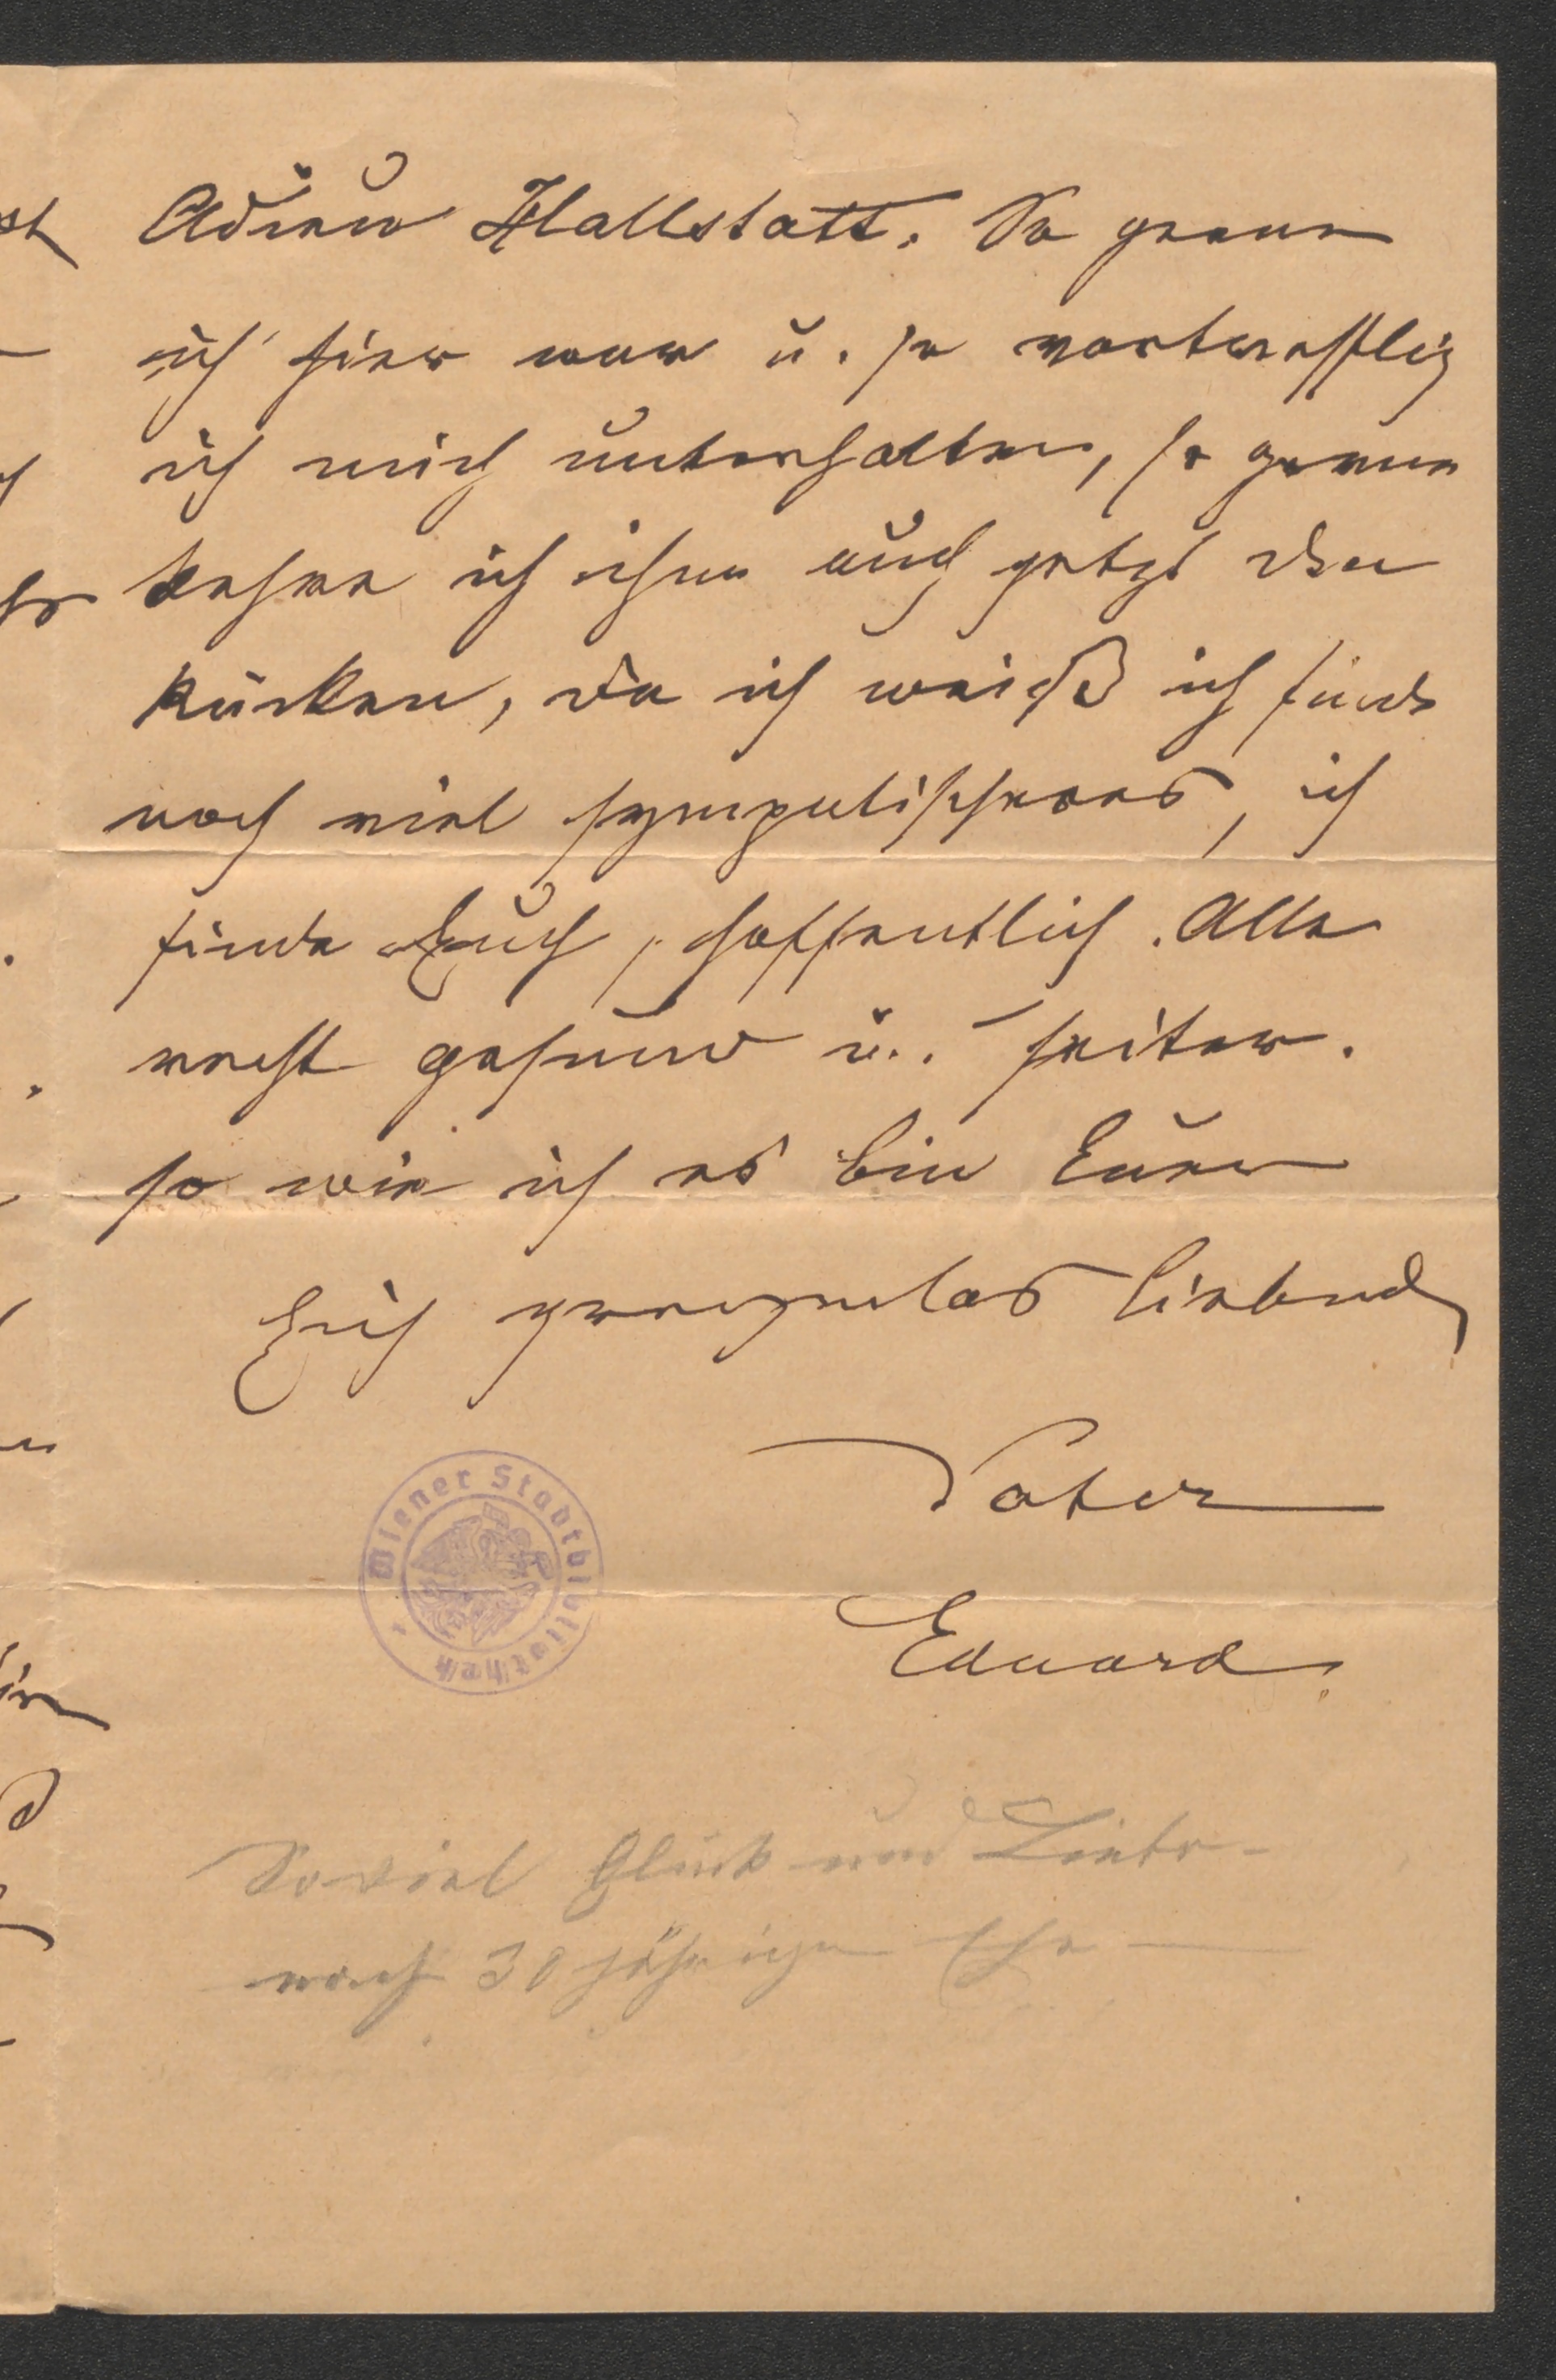 Adieu Hallstatt. So gerne
ich hier war u. so vortrefflich
ich mich unterhalten, so gerne
kehre ich ihm auch jetzt den
Rücken, da ich weiß ich finde
noch viel sympatischeres, ich
finde Euch, hoffentlich Alle
recht gesund u. heiter.
so wie ich es bin Euer
Euch grenzenlos liebend
Vater
Eduard.
Wiener Stadtbibliothek
So viel Glück und Liebe
nach 30 jähriger Ehe —